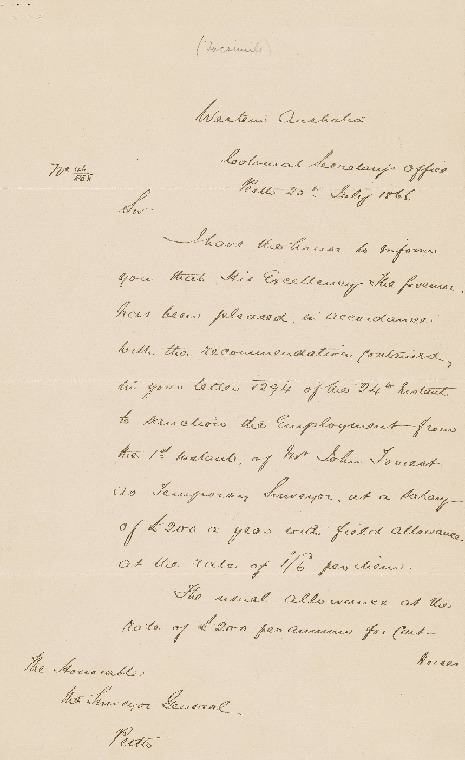 (Facsimile)
Western Australia
Colonial Secretary's Office
Perth 20th July 186
No
Sir
I have the honor to inform
you that His Excellency The Governor
has been pleased, in accordance
with the recommendation contained,
in your letter 294 of the 24th Instant
to sanction the Employment from
the 1st Instant, of Mr John Forrest
as Temporary Surveyor, at a salary
of £200 a year with field allowance
at the rate of 1/6 per diem.
The usual allowance at the
rate of £200 per annum for Cart
Horses
The Honorable
The Surveyor General.
Perth